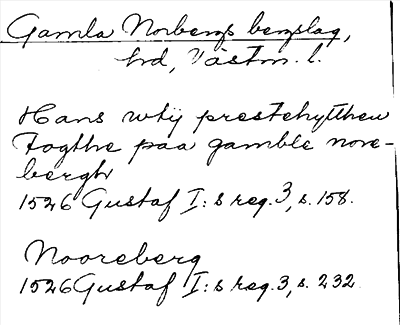 Gamla Norbergs bergslag,
hd, Västm. l.
Hans wtij prestehytthen
Fogthe paa gamble nore-
bergh
1526 Gustaf I:s reg. 3, s. 158.
Nooreberg
1526 Gustaf I:s reg. 3, s. 232.